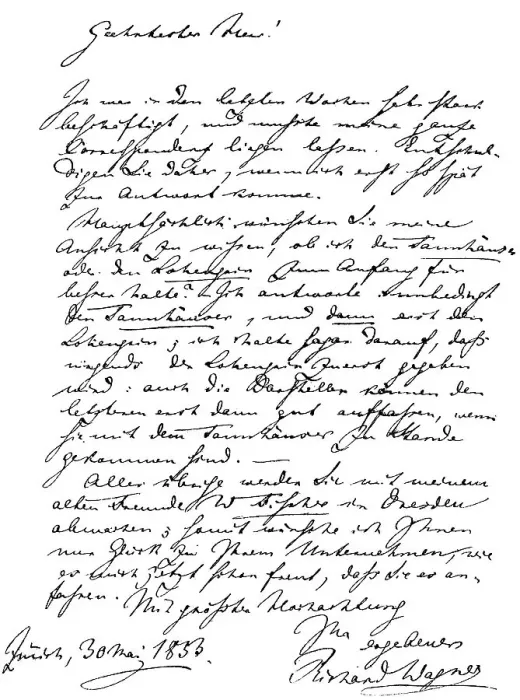 Geehrtester Herr!
Ich war in den letzten Wochen sehr stark
beschäftigt, und musste meine ganze
Correspondenz liegen lassen. Entschul-
digen Sie daher, wenn ich erst so spät
zur Antwort komme.
Hauptsächlich wünschen Sie meine
Ansicht zu wissen, ob ich den Tannhäuser
oder den Lohengrin zum Anfang für
besser halte? Ich antworte unbedingt
den Tannhäuser, und dann erst den
Lohengrin; ich halte sogar darauf, daß
nirgends der Lohengrin zuerst gegeben
wird: auch die Darsteller können den
letzteren erst dann gut auffassen, wenn
sie mit dem Tannhäuser zu Stande
gekommen sind. —
Alles übrige werden Sie mit meinem
alten Freunde W Fischer in Dresden
abmachen; somit wünsche ich Ihnen
nur Glück zu Ihrem Unternehmen, wie
es mich jetzt schon freut, daß Sie es an-
fassen. Mit größter Hochachtung
Ihr
ergebener
Zürich, 30 Mai 1853.
Richard Wagner